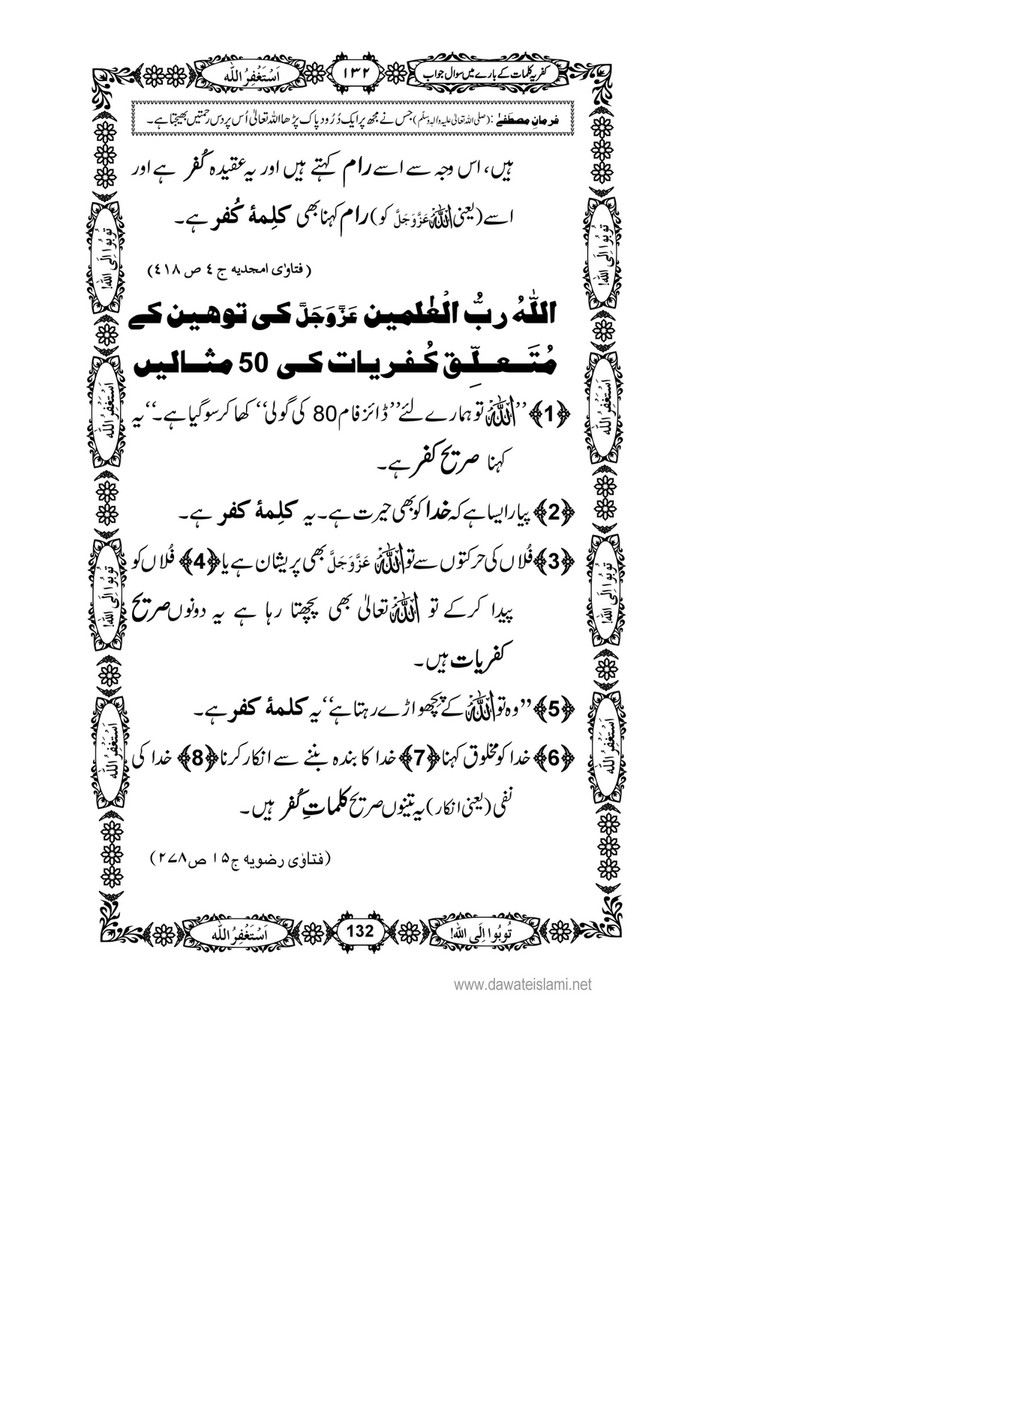 کفریہ کلمات کے بارے میں سوال جواب
۱۳۲
اَسْتَغْفِرُ اللّٰه
فرمانِ مصطَفٰے :(صلی اللہ تعالیٰ علیہ والہٖ وسلّم) جس نے مجھ پر ایک دُرُودِ پاک پڑھا اللہ تعالیٰ اُس پر دس رحمتیں بھیجتا ہے۔
ہیں، اس وجہ سے اسے رام کہتے ہیں اور یہ عقیدہ کُفر ہے اور
اسے (یعنی اللہ عَزَّوَجَلَّ کو) رام کہنا بھی کلِمۂ کُفر ہے۔
(فتاوٰی امجدیه ج ٤ ص ٤١٨)
اللّٰهُ ربُّ الْعٰلمین عَزَّوَجَلَّ کی توهین کے
مُتَعلِّق کُفریات کی 50 مثالیں
﴿1﴾ ’’اللہ تو ہمارے لئے ’’ڈائز فام 80 کی گولی‘‘ کھا کر سو گیا ہے۔‘‘ یہ
کہنا صریح کفر ہے۔
﴿2﴾ پیار ایسا ہے کہ خدا کو بھی حیرت ہے۔ یہ کلِمۂ کفر ہے۔
﴿3﴾ فُلاں کی حرکتوں سے تو اللہ عَزَّوَجَلَّ بھی پریشان ہے یا ﴿4﴾ فُلاں کو
پیدا کر کے تو اللہ تعالیٰ بھی پچھتا رہا ہے یہ دونوں صریح
کفریات ہیں۔
﴿5﴾ ’’وہ تو اللہ کے پچھواڑے رہتا ہے‘‘ یہ کلمۂ کفر ہے۔
﴿6﴾ خدا کو مخلوق کہنا ﴿7﴾ خدا کا بندہ بننے سے انکار کرنا ﴿8﴾ خدا کی
نفی (یعنی انکار) یہ تینوں صریح کلماتِ کُفر ہیں۔
(فتاوٰی رضویه ج ۱۵ ص ۲۷۸)
تُوبُوا اِلَی اللّٰه!
اَسْتَغْفِرُ اللّٰه
تُوبُوا اِلَی اللّٰه!
اَسْتَغْفِرُ اللّٰه
تُوبُوا اِلَی اللّٰه!
اَسْتَغْفِرُ اللّٰه
تُوبُوا اِلَی اللّٰه!
اَسْتَغْفِرُ اللّٰه
تُوبُوا اِلَی اللّٰه!
132
اَسْتَغْفِرُ اللّٰه
www.dawateislami.net